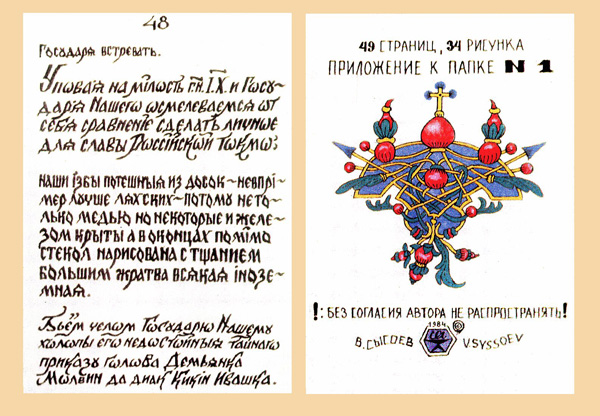 48
Государя встревать.
Уповая на мiлость гн. I.X. и Госу-
даря Нашего ѡсмелеваемся ѡт
себя сравненiе сделать личные
для славы Россiйской токмо:
наши iзбы потешныя из досок~невпрi-
мер лучше ляхских~потому не то-
лько медью но некоторые и желе-
зом крыты а в оконцах помiмо
стекол нарисована с тщанием
большим жратва всякая iнозе-
мная.
Бьём челом Государю Нашему
холопы его недостойныя тайного
приказу голова Демьянка
да диак Кикiн Ивашка.
49 СТРАНИЦ, 34 РИСУНКА
ПРИЛОЖЕНИЕ К ПАПКЕ N 1
!: БЕЗ СОГЛАСИЯ АВТОРА НЕ РАСПРОСТРАНЯТЬ!
В.СЫСОЕВ 1984 © V.SYSSOEV